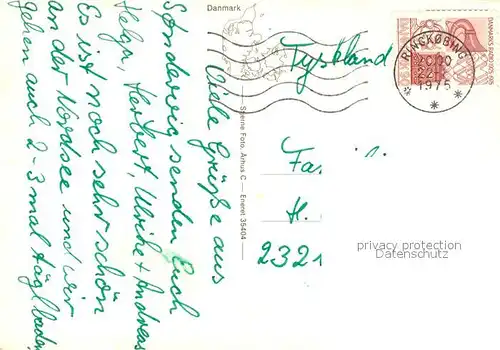 Danmark
Viele Grüße aus
Søndervig senden Euch
Helga, Herbert, Ulrike + Andreas
Es ist noch sehr schön
an der Nordsee und wir
gehen auch 2-3 mal tägl. baden.
Stenne Foto. Århus C — Eneret 35404
RINGKØBING
2000
22
1975
Tyskland
Fa.
H.
2321
privacy protection
Datenschutz